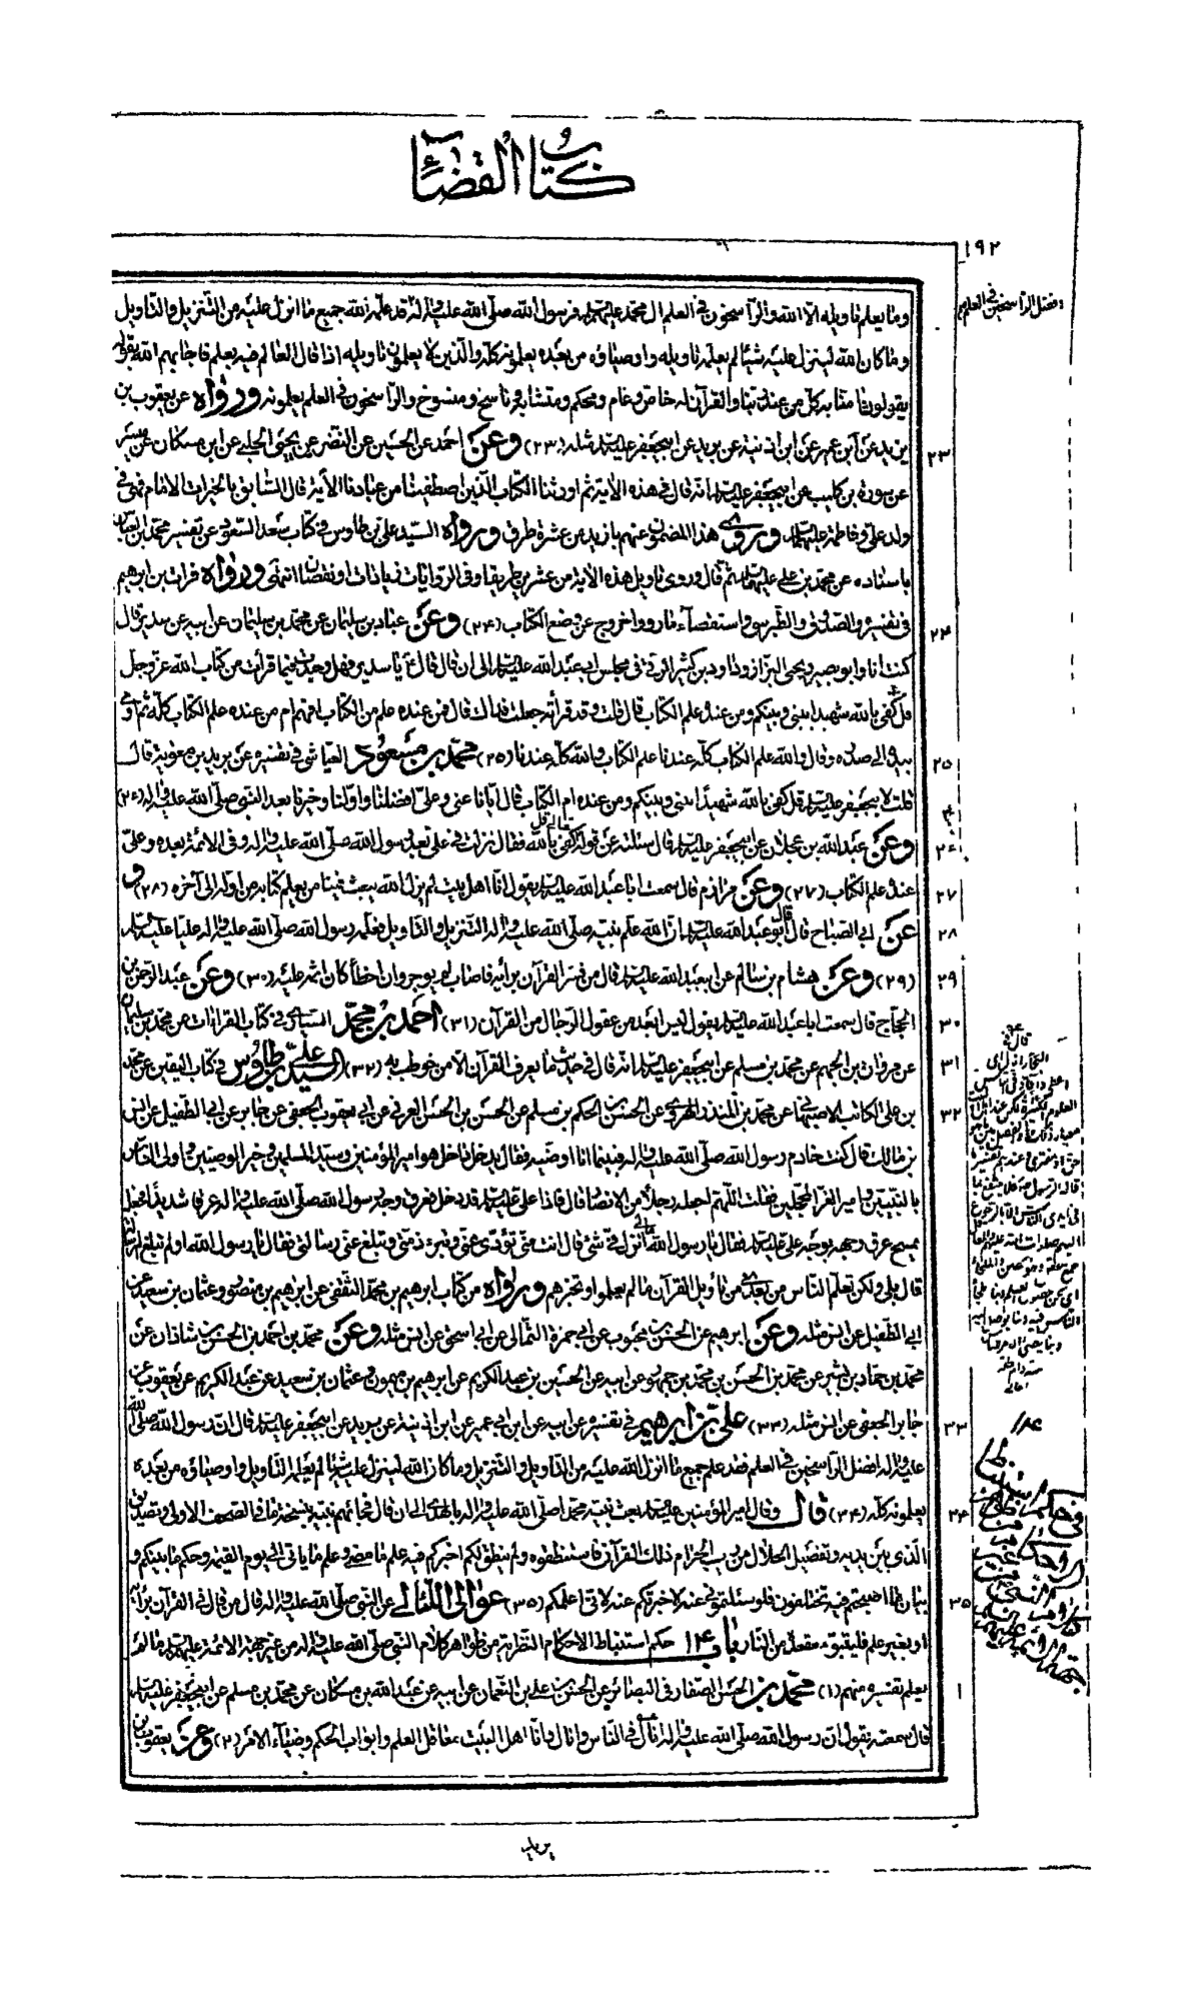 كتاب القضاء
١٩٢
فضل الراسخين في العلم
وما يعلم تاويله الا الله والراسخون في العلم ال محمد عليهم فرسول الله صلى الله عليه واله قد علمه الله جميع ما انزل عليه من التنزيل والتاويل
وما كان الله لينزل عليه شيئا لم يعلمه تاويله واوصياؤه من بعده يعلمونه كله والذين لا يعلمون تاويله اذا قال العالم فيه بعلم فاجابهم الله بقوله
يقولون امنا به كل من عند ربنا والقرآن له خاص وعام ومحكم ومتشابه وناسخ ومنسوخ والراسخون في العلم يعلمونه ورواه عن يعقوب بن
٢٣ يزيد عن ابن ابي عمير عن ابن اذينة عن بريد عن ابيجعفر عليه السلام مثله (٢٣) وعن احمد عن الحسين عن النضر عن يحيى الحلبي عن ابن مسكان عن ميسر
عن سورة بن كليب عن ابيجعفر عليه السلام انه قال في هذه الاية ثم اورثنا الكتاب الذين اصطفينا من عبادنا الآية قال السابق بالخيرات الامام فهي في
ولد علي وفاطمة عليهما السلام وروي هذا المضمون عنهم بازيد من عشرة طرق ورواه السيد علي بن طاوس في كتاب سعد السعود عن تفسير محمد بن العباس
باسناده عن محمد بن علي عليهما السلام ثم قال وروى تاويل هذه الاية من عشرين طريقا وفي الروايات زيادات او نقصان انتهى ورواه فرات بن ابرهيم
٢٤ في تفسيره والصدوق والطبرسي واستقصاء ما رووا خروج عن وضع الكتاب (٢٤) وعن عباد بن سليمان عن محمد بن سليمان عن ابيه عن سدير قال
كنت انا وابو بصير ويحيى البزاز وداود بن كثير الرقي في مجلس ابي عبد الله عليه السلام الى ان قال قال يا سدير فهل وجدت فيما قرأت من كتاب الله عز وجل
قل كفى بالله شهيدا بيني وبينكم ومن عنده علم الكتاب قال قلت وقد قرأته جعلت فداك قال فمن عنده علم من الكتاب افهم ام من عنده علم الكتاب كله ثم اومى
٢٥ بيده الى صدره وقال والله علم الكتاب كله عندنا علم الكتاب والله كله عندنا (٢٥) محمد بن مسعود العياشي في تفسيره عن بريد بن معوية قال
قلت لابيجعفر عليه السلام قل كفى بالله شهيدا بيني وبينكم ومن عنده ام الكتاب قال ايانا عنى وعلي افضلنا واولنا وخيرنا بعد النبي صلى الله عليه واله (٢٦)
٢٦ وعن عبد الله بن عجلان عن ابيجعفر عليه السلام قال سئلته عن قوله تعالى قل كفى بالله فقال نزلت في علي بعد رسول الله صلى الله عليه واله وفي الائمة بعده وعلي
٢٧ عنده علم الكتاب (٢٧) وعن مرازم قال سمعت ابا عبد الله عليه السلام يقول انا اهل بيت لم يزل الله يبعث فينا من يعلم كتابه من اوله الى آخره (٢٨) و
٢٨ عن ابي الصباح قال قال ابو عبد الله عليه السلام ان الله علم نبيه صلى الله عليه واله التنزيل والتاويل فعلمه رسول الله صلى الله عليه واله عليا عليه السلام
٢٩ (٢٩) وعن هشام بن سالم عن ابيعبد الله عليه السلام قال من فسر القرآن برأيه فاصاب لم يوجر وان اخطأ كان اثمه عليه (٣٠) وعن عبد الرحمن بن
٣٠ الحجاج قال سمعت ابا عبد الله عليه السلام يقول ليس ابعد من عقول الرجال من القرآن (٣١) احمد بن محمد السياري في كتاب القراءات عن محمد بن سليمان
٣١ عن مروان بن الجهم عن محمد بن مسلم عن ابيجعفر عليه السلام انه قال في حديث ما يعرف القرآن الا من خوطب به (٣٢) السيد علي بن طاوس في كتاب اليقين عن محمد
٣٢ بن علي الكاتب الاصبهاني عن محمد بن المنذر الهروي عن الحسين بن الحكم بن مسلم عن الحسن بن الحسين العرني عن ابي يعقوب الجعفي عن جابر عن ابي الطفيل عن انس
بن مالك قال كنت خادم رسول الله صلى الله عليه واله فبينما انا اوضيه فقال يدخل داخل هو امير المؤمنين وسيد المسلمين وخير الوصيين واولى الناس
بالنبيين وامير الغر المحجلين فقلت اللهم اجعله رجلا من الانصار قال فاذا علي عليه السلام قد دخل فعرق وجه رسول الله صلى الله عليه واله عرقا شديدا فجعل
يمسح عرق وجهه بوجه علي عليه السلام فقال يا رسول الله مالي انزل في شئ قال انت مني تؤدي عني وتبرء ذمتي وتبلغ عني رسالتي فقال يا رسول الله او لم تبلغ الرسالة
قال بلى ولكن تعلم الناس من بعدي من تاويل القرآن ما لم يعلموا او تخبرهم ورواه من كتاب ابرهيم بن محمد الثقفي عن ابرهيم بن منصور وعثمان بن سعيد عن
ابي الطفيل عن انس مثله وعن ابرهيم عن الحسن بن محبوب عن ابي حمزة الثمالي عن ابي اسحق عن انس مثله وعن محمد بن احمد بن الحسن بن شاذان عن
محمد بن حماد بن بشير عن محمد بن الحسن بن محمد بن جمهور عن ابيه عن الحسين بن عبد الكريم عن ابرهيم بن ميمون وعثمان بن سعيد عن عبد الكريم عن يعقوب عن
٣٣ جابر الجعفي عن انس مثله (٣٣) علي بن ابرهيم في تفسيره عن ابيه عن ابن ابي عمير عن ابن اذينة عن بريد عن ابيجعفر عليه السلام قال ان رسول الله صلى الله
عليه واله افضل الراسخين في العلم فقد علم جميع ما انزل الله عليه من التاويل والتنزيل وما كان الله لينزل عليه شيئا لم يعلمه التاويل واوصياؤه من بعده
٣٤ يعلمونه كله (٣٤) قال وقال امير المؤمنين عليه السلام بعث نبيه محمدا صلى الله عليه واله بالهدى الى ان قال فجائهم نبيه بنسخة ما في الصحف الاولى وتصديق
الذي بين يديه وتفصيل الحلال من ريب الحرام ذلك القرآن فاستنطقوه ولم ينطق لكم اخبركم فيه علم ما مضى وعلم ما ياتي الى يوم القيمة وحكم ما بينكم و
٣٥ بيان ما اصبحتم فيه تختلفون فلو سئلتموني عنه لاخبرتكم عنه لاني اعلمكم (٣٥) عوالي اللئالي عن النبي صلى الله عليه واله قال من قال في القرآن برأيه
او بغير علم فليتبوء مقعده من النار باب ١٤ حكم استنباط الاحكام النظرية من ظواهر كلام النبي صلى الله عليه واله من غير جهة الائمة عليهم السلام ما لم
١ يعلم تفسيره منهم (١) محمد بن الحسن الصفار في البصائر عن الحسن بن علي بن النعمان عن ابيه عن عبد الله بن مسكان عن محمد بن مسلم عن ابيجعفر عليه السلام
قال سمعته يقول ان رسول الله صلى الله عليه واله انال في الناس وانال وانا اهل البيت معاقل العلم وابواب الحكم وضياء الامر (٢) وعن يعقوب بن